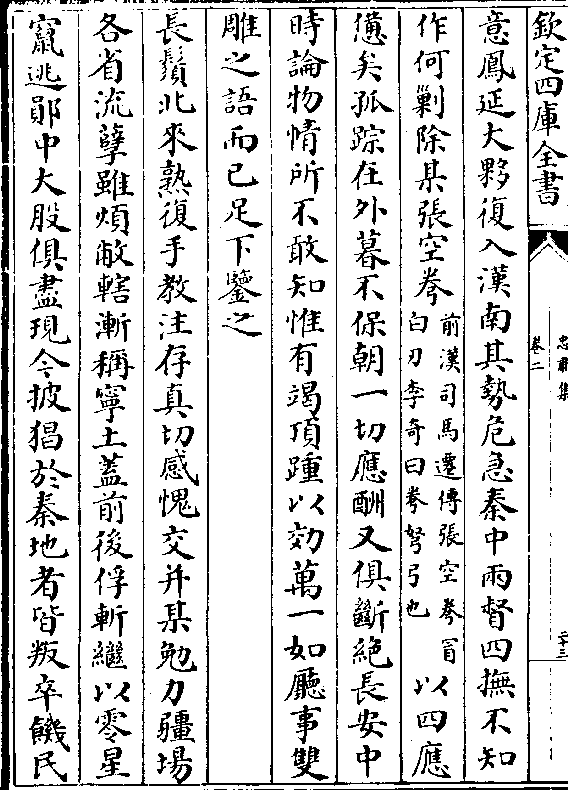 欽定四庫全書
忠肅集
卷二
意鳳延大夥復入漢南其勢危急秦中兩督四撫不知
作何剿除某張空弮前漢司馬遷傳張空弮冒白刃李奇曰弮弩弓也以四應
憊矣孤踪在外暮不保朝一切應酬又俱斷絶長安中
時論物情所不敢知惟有竭頂踵以効萬一如廳事雙
雕之語而已足下鑒之
長鬚北來熟復手教注存真切感愧交并某勉力疆場
各省流孽雖煩敝轄漸稱寧土蓋前後俘斬繼以零星
竄逃鄖中大股俱盡現今披猖於秦地者皆叛卒饑民